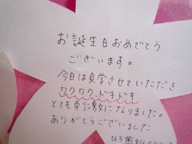 お誕生日おめでとう
ございます。
今日は見学させていただき
ワクワク、ドキドキ
とても参考になりました。
ありがとうございました